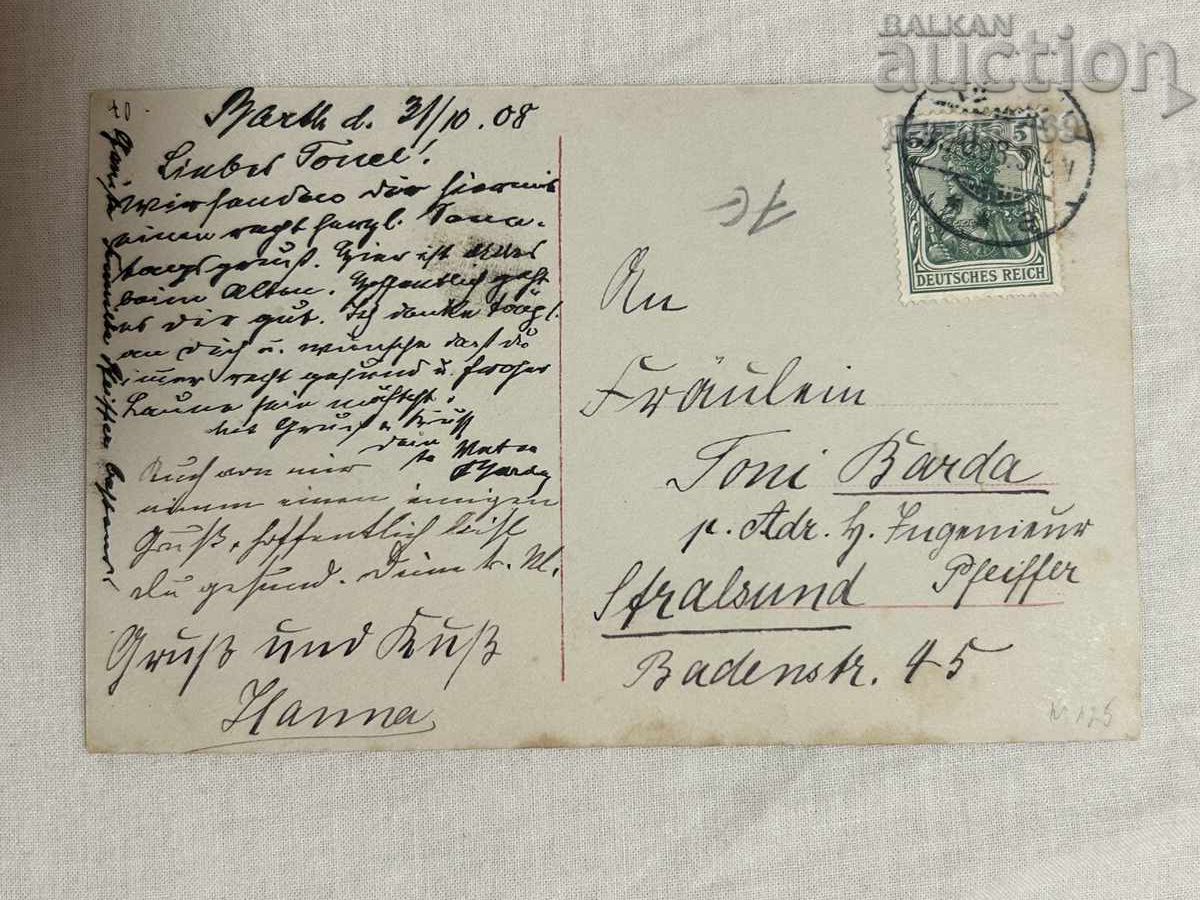 BALKAN
auction
Barth d. 31/10.08
Liebes Tonel!
Wir senden dir hiermit
einen recht herzl. Sonn-
tagsgruß. Hier ist alles
beim Alten. Hoffentlich geht
es dir gut. Ich denke tägl.
an dich u. wünsche daß du
immer recht gesund u. froher
Laune sein möchtest.
Mit Gruß u. Kuß
dein
tr. Vater
Auch von mir
nimm einen innigen
Gruß, hoffentlich bist
du gesund. Deine tr. M.
Gruß und Kuß
Hanna
Familie Pfeiffer
DEUTSCHES REICH
5
An
Fräulein
Toni Barda
p. Adr. H. Ingenieur
Pfeiffer
Stralsund
Badenstr. 45